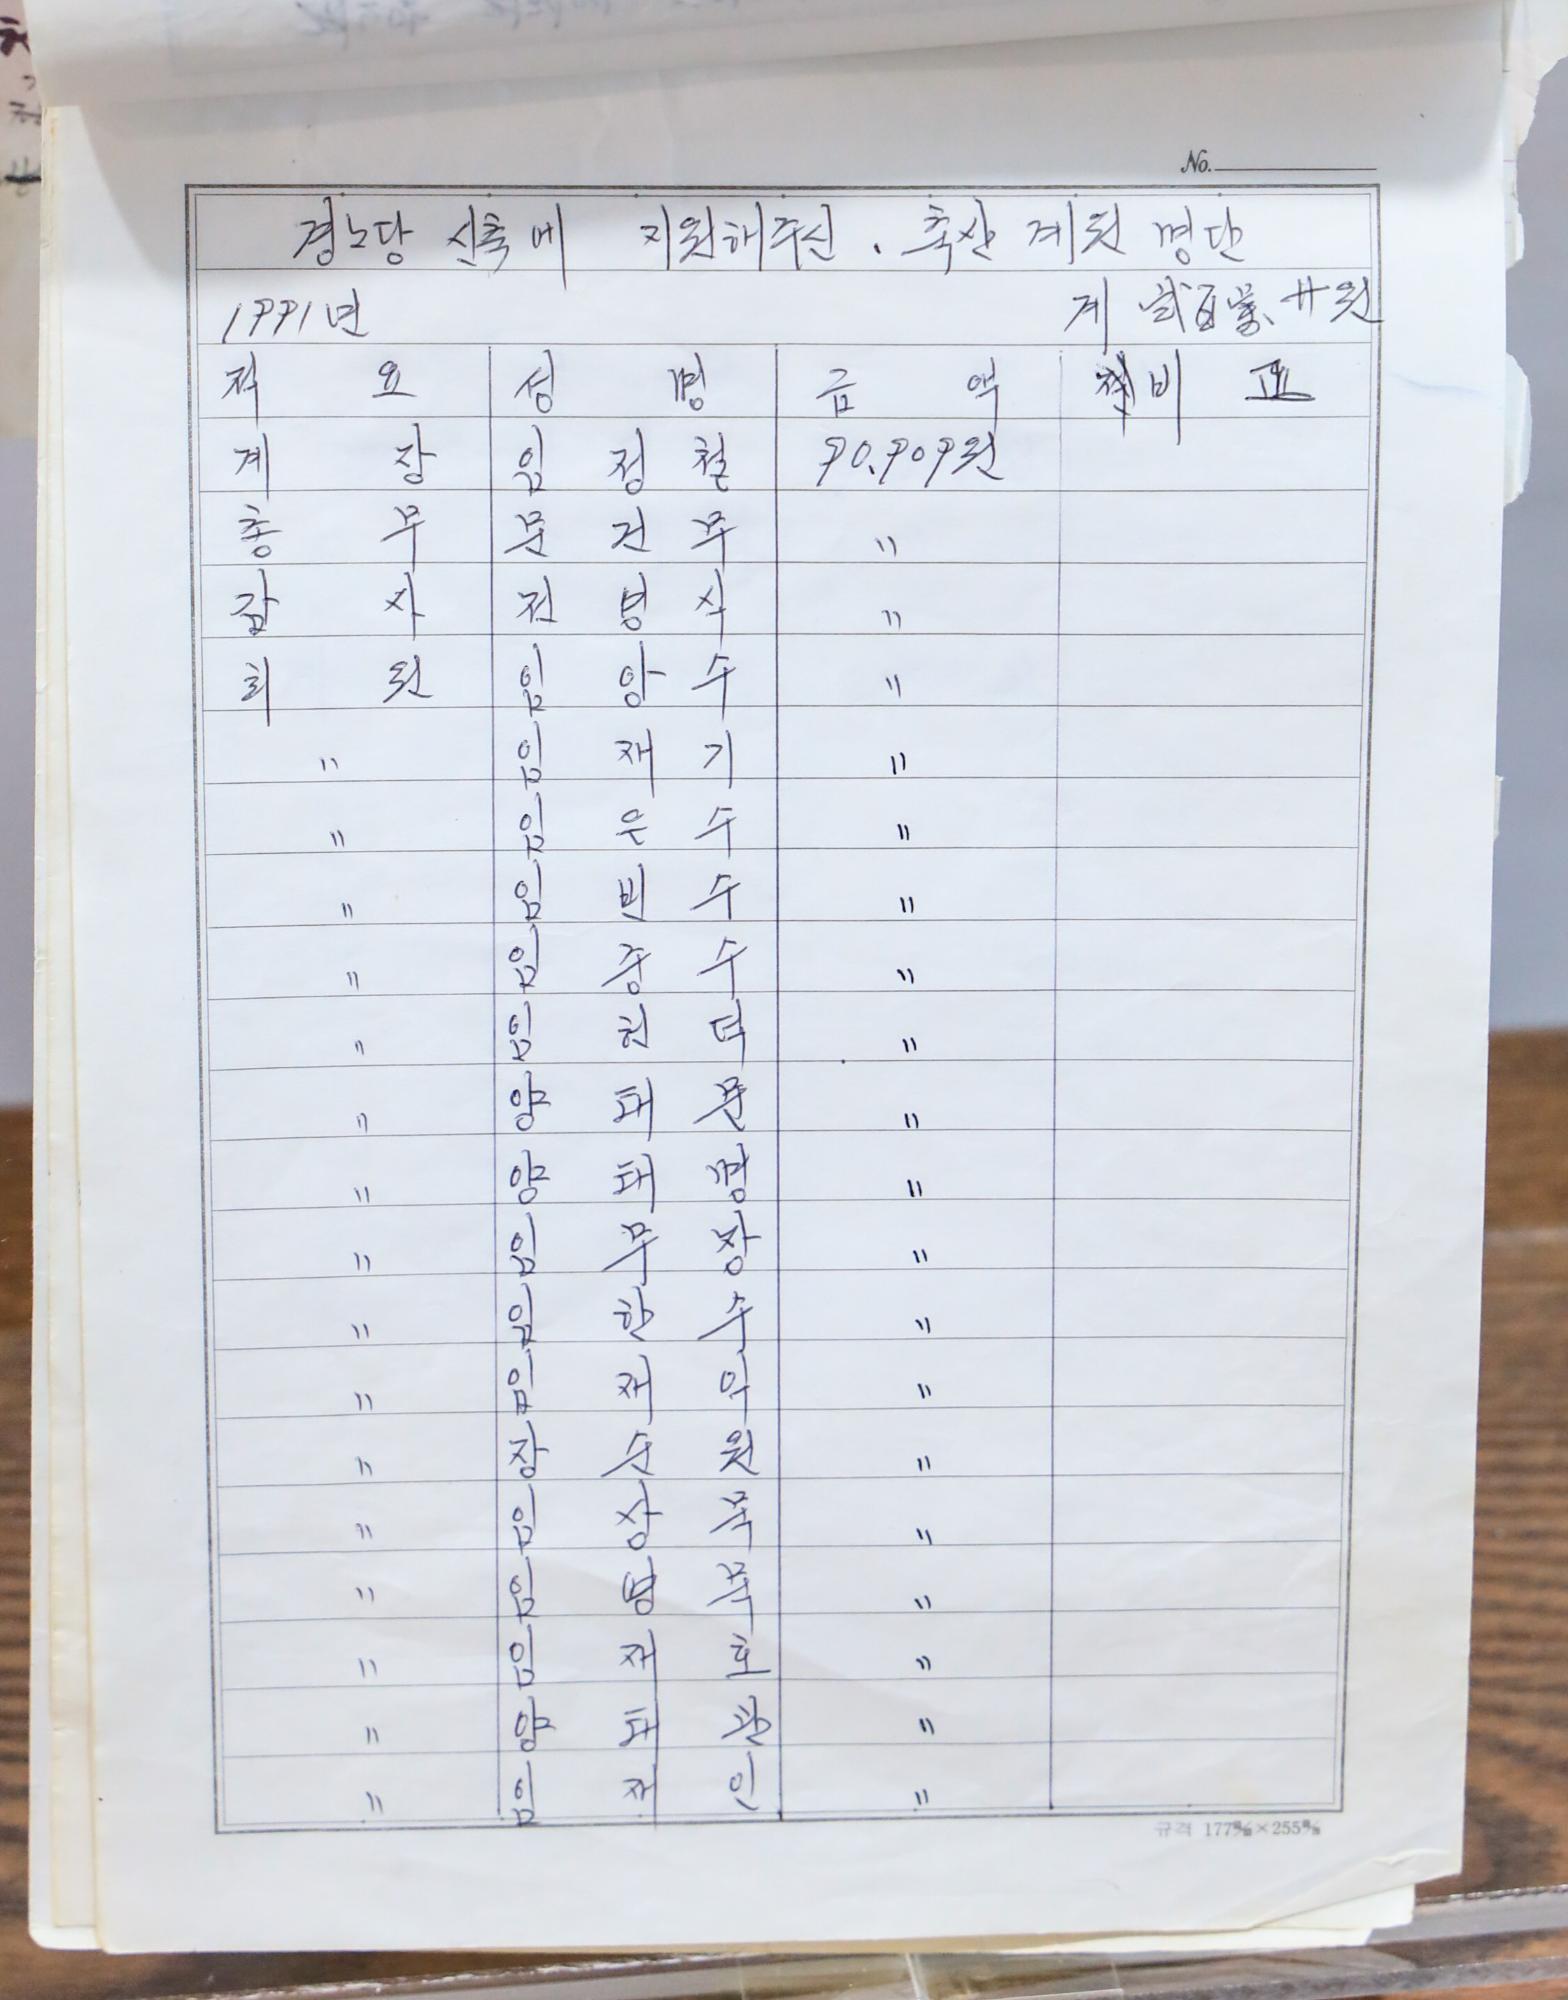 No.
경노당 신축에 지원해주신. 축산 계원 명단
1991년 계 弐百萬、廾원
적 요 성 명 금 액 비 고
계 장 임 정 철 90.909원
총 무 문 건 주 〃
감 사 전 병 식 〃
회 원 임 양 수 〃
〃 임 재 기 〃
〃 임 은 수 〃
〃 임 빈 수 〃
〃 임 중 수 〃
〃 임 헌 덕 〃
〃 양 태 문 〃
〃 양 태 명 〃
〃 임 무 장 〃
〃 임 한 수 〃
〃 임 재 익 〃
〃 장 순 원 〃
〃 임 상 묵 〃
〃 임 병 묵 〃
〃 임 재 호 〃
〃 양 태 관 〃
〃 임 재 인 〃
규격 177㎜×255㎜